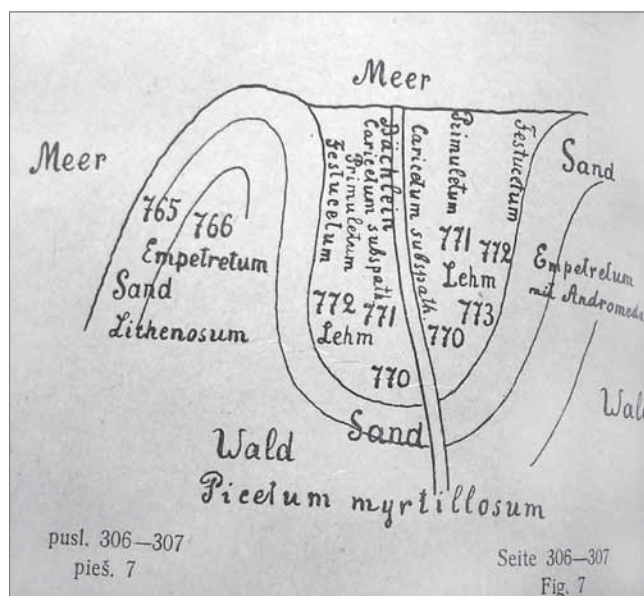 Meer
Meer
Sand
765
766
Empetretum
Sand
Lithenosum
Festucetum
Primuletum
Caricetum subspath.
Bächlein
Caricetum subspath.
Primuletum
Festucetum
772
771
Lehm
770
771
772
Lehm
773
770
Empetretum
mit Andromeda
Wald
Sand
Picetum myrtillosum
pusl. 306—307
pieš. 7
Seite 306—307
Fig. 7